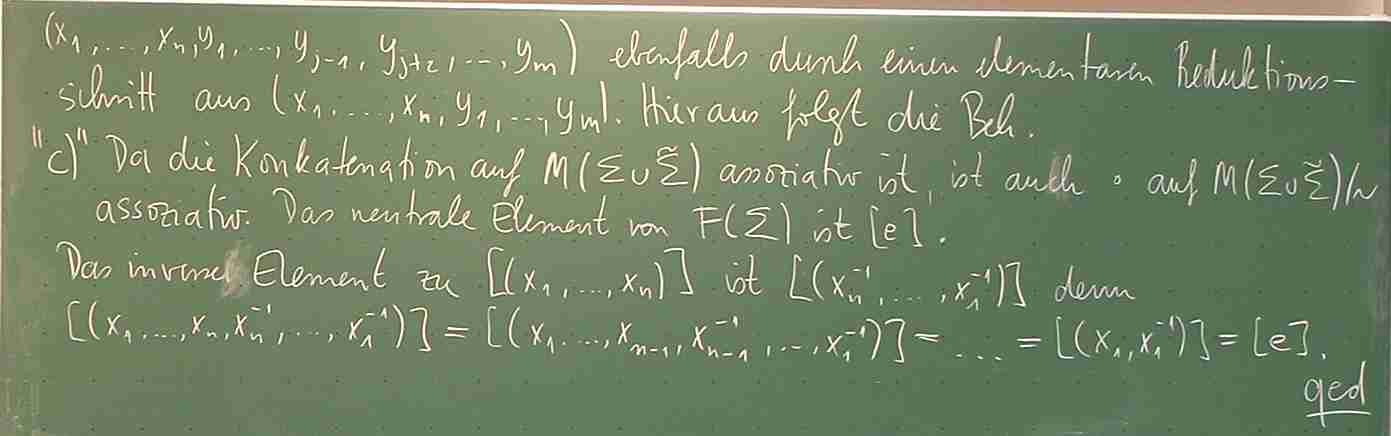 (x₁,...,xₙ,y₁,...,yⱼ₋₁,yⱼ₊₂,...,yₘ) ebenfalls durch einen elementaren Reduktions-
schritt aus (x₁,...,xₙ,y₁,...,yₘ). Hieraus folgt die Beh.
"c)" Da die Konkatenation auf M(Σ∪Σ̃) assoziativ ist, ist auch ∘ auf M(Σ∪Σ̃)/~
assoziativ. Das neutrale Element von F(Σ) ist [e].
Das inverse Element zu [(x₁,...,xₙ)] ist [(xₙ⁻¹,...,x₁⁻¹)] denn
[(x₁,...,xₙ,xₙ⁻¹,...,x₁⁻¹)] = [(x₁,...,xₙ₋₁,xₙ₋₁⁻¹,...,x₁⁻¹)] = ... = [(x₁,x₁⁻¹)] = [e].
qed